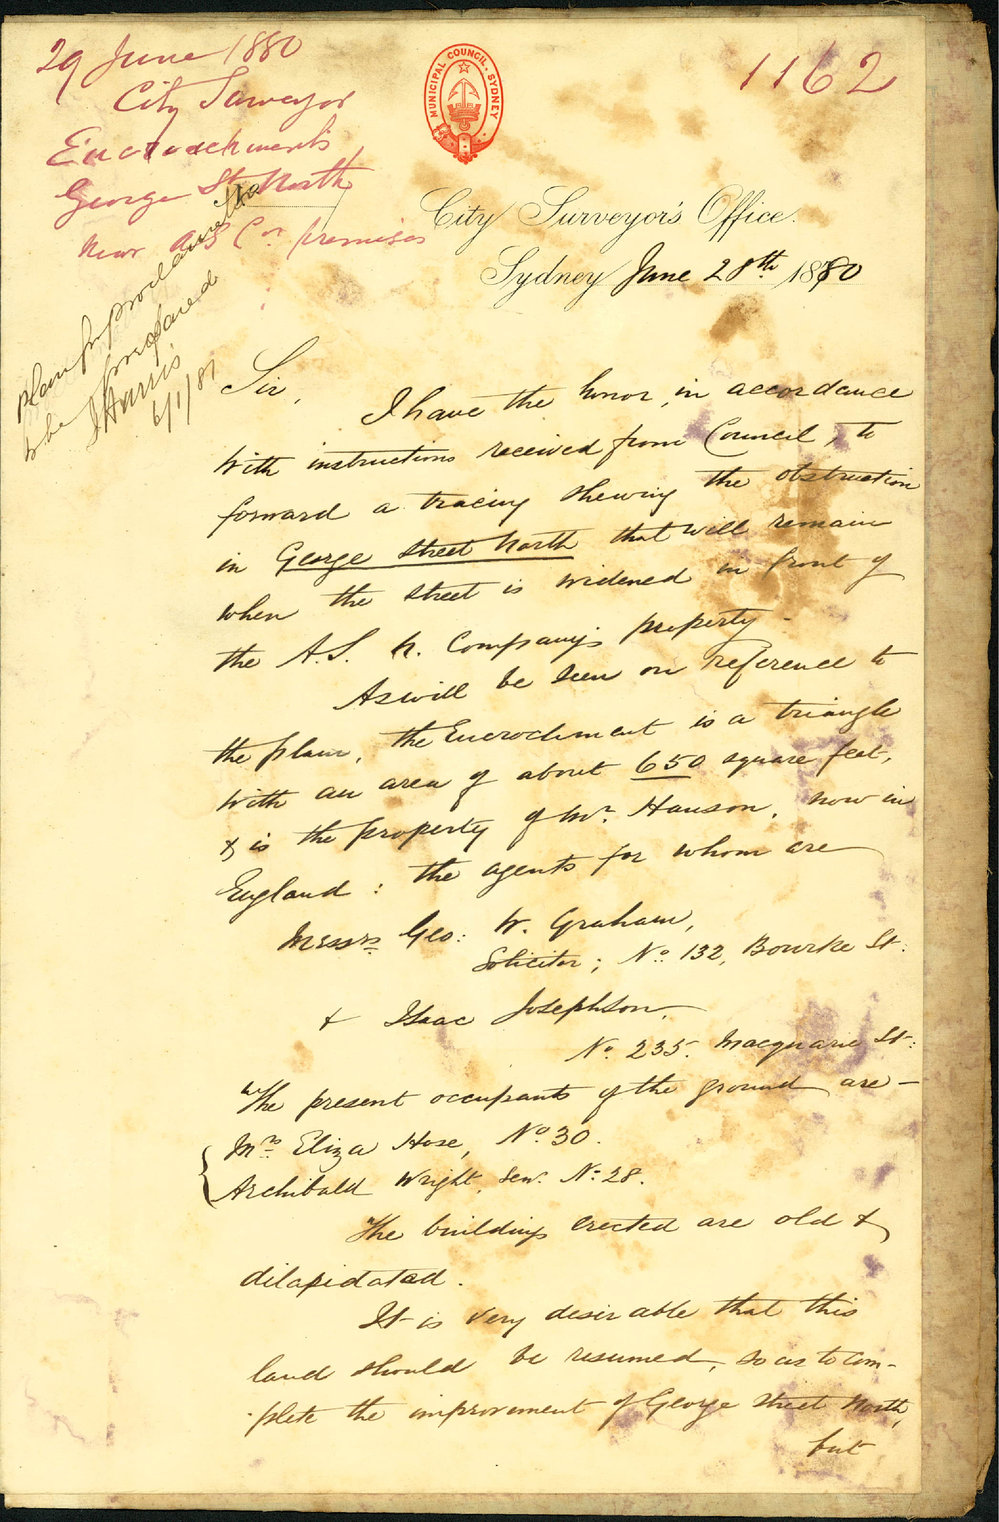 29 June 1880
City Surveyor
Encroachments
George St North
near AS Co.n premises
1162
MUNICIPAL COUNCIL, SYDNEY
City Surveyor's Office.
Sydney June 28th 1880
Plan for proclamation
to be prepared
J Harris
6/1/81
Sir,
I have the honor, in accordance
with instructions received from Council, to
forward a tracing shewing the obstruction
in George Street North that will remain
when the street is widened in front of
the A.S. N. Company's property -
As will be seen on reference to
the plan, the Encrochment is a triangle
with an area of about 650 square feet,
& is the property of Mr. Hanson, now in
England : the agents for whom are
Messrs Geo: W. Graham,
Solicitor; No. 132, Bourke St.
& Isaac Josephson,
No. 235. Macquarie St:
The present occupants of the ground are -
Mrs Eliza Hose, No. 30.
Archibald Wright, Sen. No. 28.
The buildings erected are old &
dilapidatad.
It is very desirable that this
land should be resumed, so as to com-
-plete the improvement of George Street North,
but